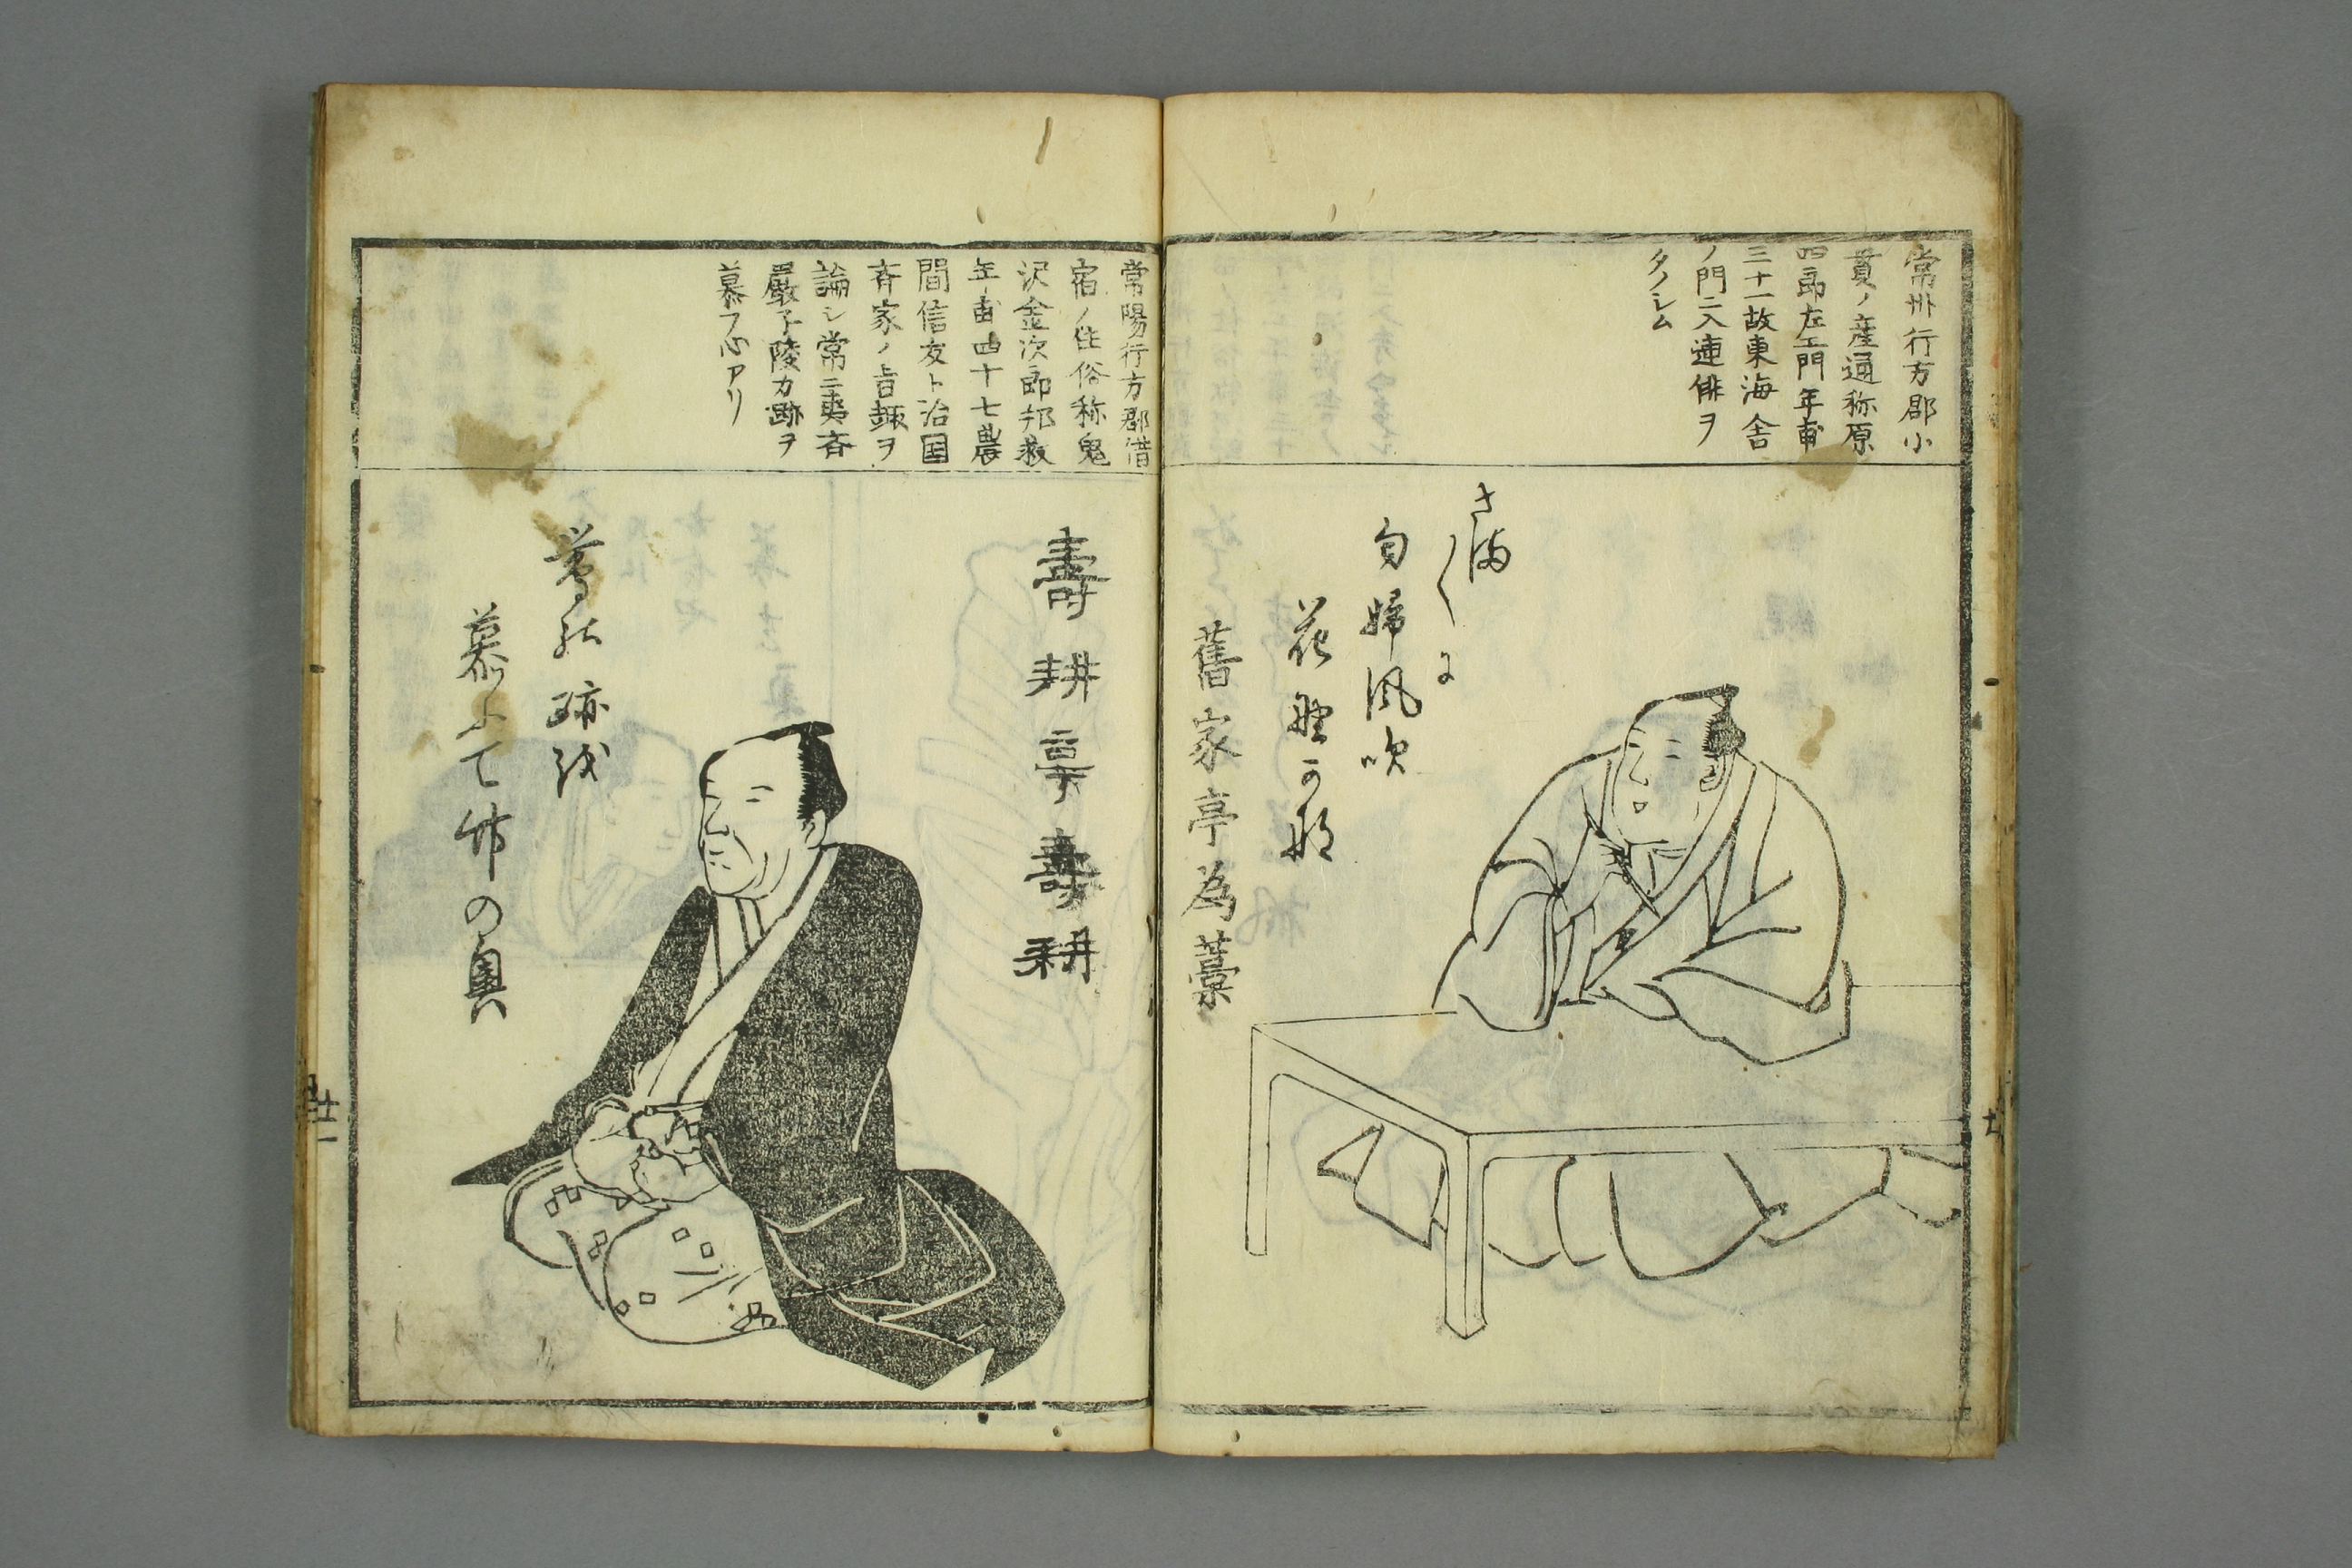 常州行方郡小
貫ノ産通称原
四郎左エ門年甫
三十一故東海舎
ノ門ニ入連俳ヲ
タノシム
さま
〳〵に
匂ふ風吹
花野かな
舊家亭為藁
常陽行方郡借
宿ノ住俗称鬼
沢金次郎邦教
年甫四十七農
間信友ト治国
斉家ノ旨趣ヲ
論シ常ニ夷斉
嚴子陵カ跡ヲ
慕フ心アリ
壽耕亭壽耕
鶯の跡を
慕ふて竹の奥